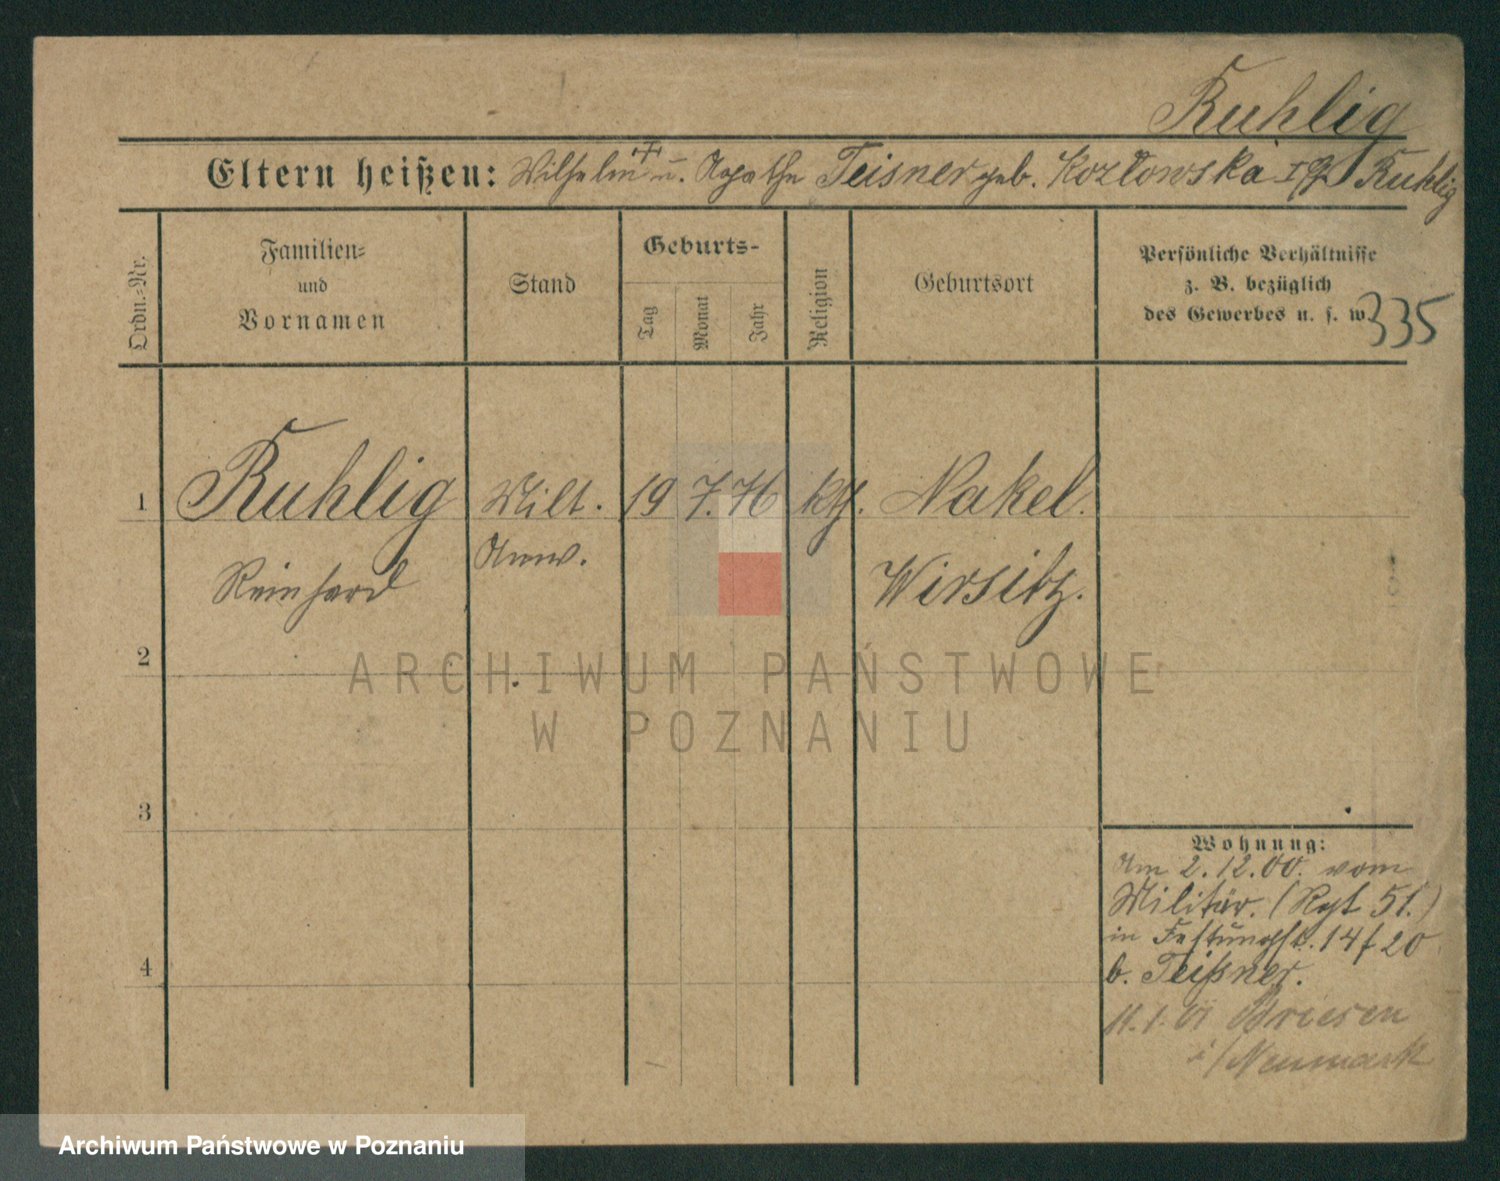 Ruhlig
Eltern heißen: Wilhelm + u. Agathe Teisner geb. Kozłowska Ruhlig
Ordn.-Nr.
Familien-
und
Vornamen
Stand
Geburts-
Tag
Monat
Jahr
Religion
Geburtsort
Persönliche Verhältnisse
z. B. bezüglich
des Gewerbes u. s. w.
335
1
Ruhlig
Milt.
19
7.
76
kth.
Nakel.
Reinhard
Anw.
Wirsitz.
2
ARCHIWUM PAŃSTWOWE
W POZNANIU
3
4
Wohnung:
Am 2. 12. 00. vom
Militär. (Rgt 51.)
in Festungsst. 14 f 20
b. Teißner.
11.1.01 Briesen
i/Neumark
Archiwum Państwowe w Poznaniu